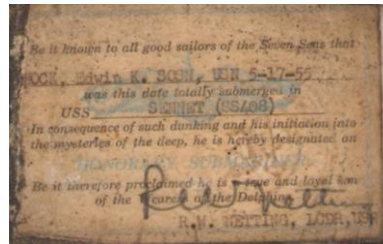 Be it known to all good sailors of the Seven Seas that
OCK, Edwin K. SOSN, USN 5-17-55
was this date totally submerged in
USS SENNET (SS408)
In consequence of such dunking and his initiation into
the mysteries of the deep, he is hereby designated an
HONORARY SUBMARINER
Be it therefore proclaimed he is a true and loyal son
of the Fearers of the Dolphin
R.W. WETTING, LCDR, US